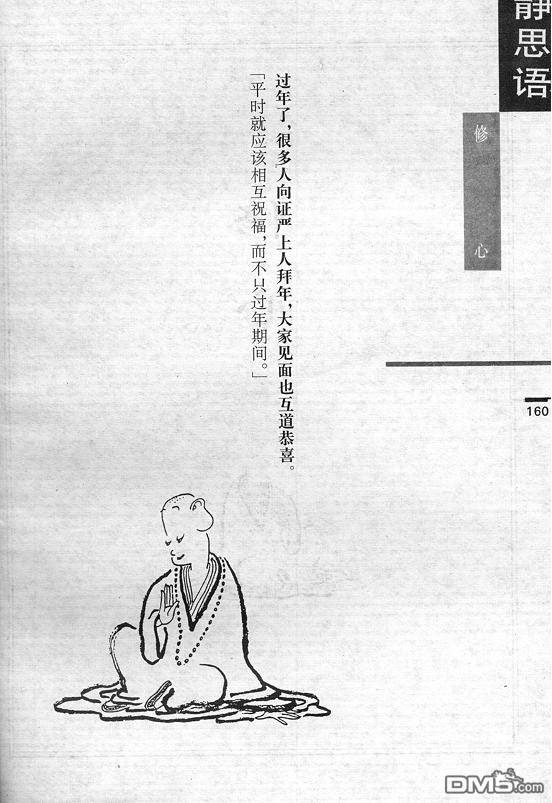 静思语
修心
过年了，很多人向证严上人拜年，大家见面也互道恭喜。
「平时就应该相互祝福，而不只过年期间。」
160
DM5.com